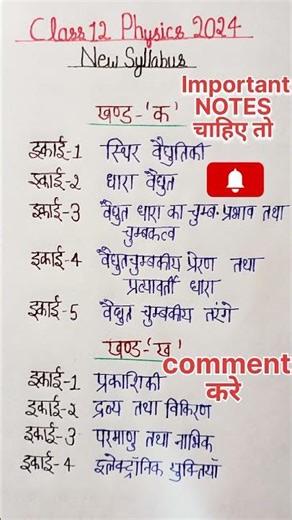 Class 12 Physics 2024
New Syllabus
Important
NOTES
चाहिए तो
खण्ड-'क'
इकाई-1 स्थिर वैद्युतिकी
इकाई-2 धारा वैद्युत
इकाई-3 वैद्युत धारा का चुम्ब. प्रभाव तथा
चुम्बकत्व
इकाई-4 वैद्युतचुम्बकीय प्रेरण तथा
प्रत्यावर्ती धारा
इकाई-5 वैद्युत चुम्बकीय तरंगे
खण्ड-'ख'
comment
करे
इकाई-1 प्रकाशिकी
इकाई-2 द्रव्य तथा विकिरण
इकाई-3 परमाणु तथा नाभिक
इकाई-4 इलेक्ट्रॉनिक युक्तियाँ